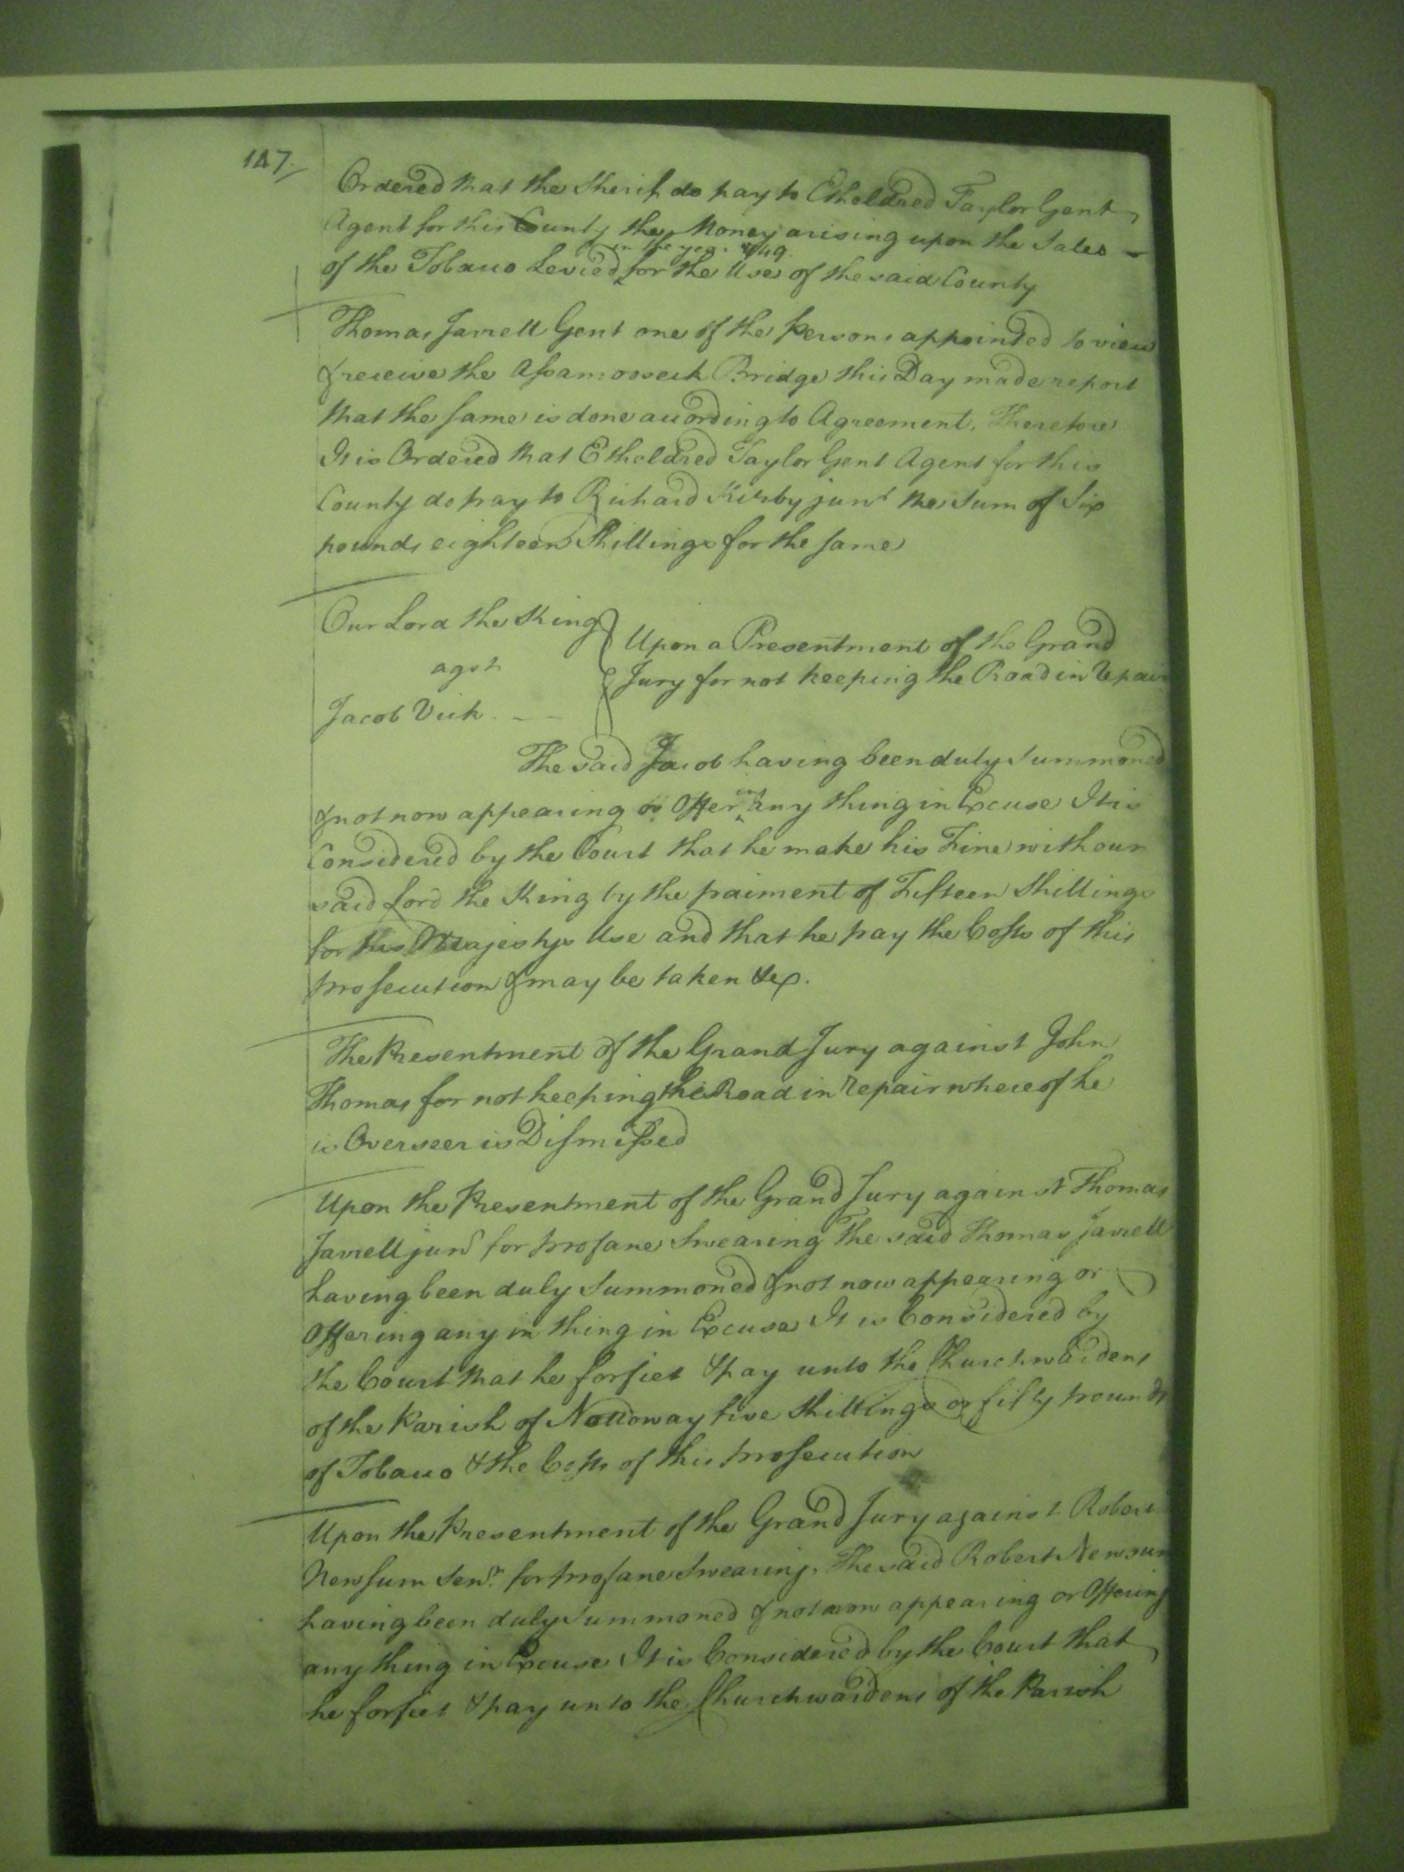 147
Ordered that the Sherif do pay to Etheldred Taylor Gent
Agent for this County the Money arising upon the Sales
in the year 1749
of the Tobacco Levied for the Use of the said County
Thomas Jarrell Gent one of the persons appointed to view
& receive the Assamooseck Bridge this Day made report
that the same is done according to Agreement. Therefore
It is Ordered that Etheldred Taylor Gent Agent for this
County do pay to Richard Kirby junr the Sum of Six
pounds eighteen Shillings for the same
Our Lord the King
agst
Jacob Vick
Upon a Presentment of the Grand
Jury for not keeping the Road in repair
The said Jacob having been duly Summoned
& not now appearing or Offering any thing in Excuse It is
Considered by the Court that he make his Fine with our
said Lord the King by the paiment of Fifteen Shillings
for his Majestys Use and that he pay the Costs of this
prosecution & may be taken &c.
The Presentment of the Grand Jury against John
Thomas for not keeping the Road in repair whereof he
is Overseer is Dismissed
Upon the Presentment of the Grand Jury against Thomas
Jarrell junr for profane Swearing The said Thomas Jarrell
having been duly Summoned & not now appearing or
Offering any in thing in Excuse It is Considered by
the Court that he forfiet & pay unto the Churchwardens
of the Parish of Nottoway five Shillings or fifty pounds
of Tobacco & the Costs of this prosecution
Upon the Presentment of the Grand Jury against Robert
Newsum Senr. for profane Swearing. The said Robert Newsum
having been duly Summoned & not now appearing or Offering
any thing in Excuse It is Considered by the Court that
he forfiet & pay unto the Churchwardens of the Parish